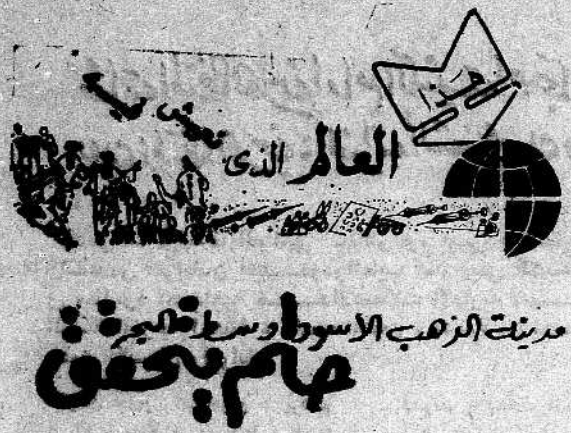 هذا
العالم الذى
نعيش فيه
مدينة الذهب الأسود وسط البحر
حلم يتحقق